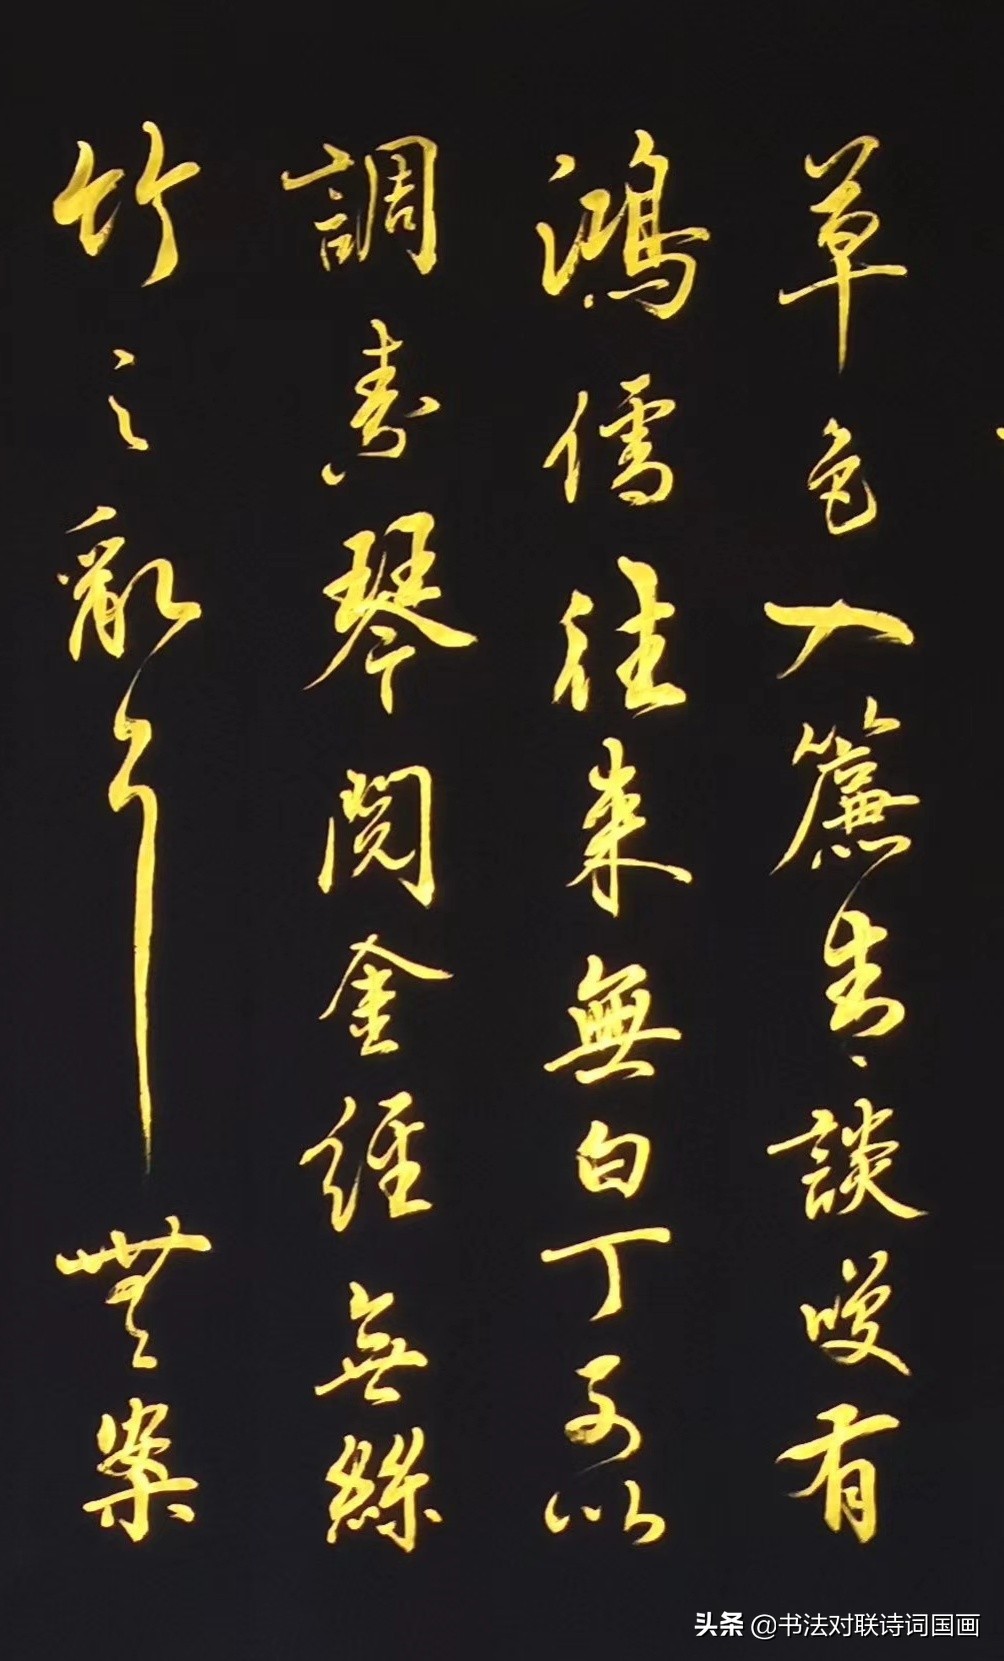 草色入簾青談咲有
鴻儒往来無白丁可以
調素琴閱金經無絲
竹之亂耳無案
头条 @书法对联诗词国画